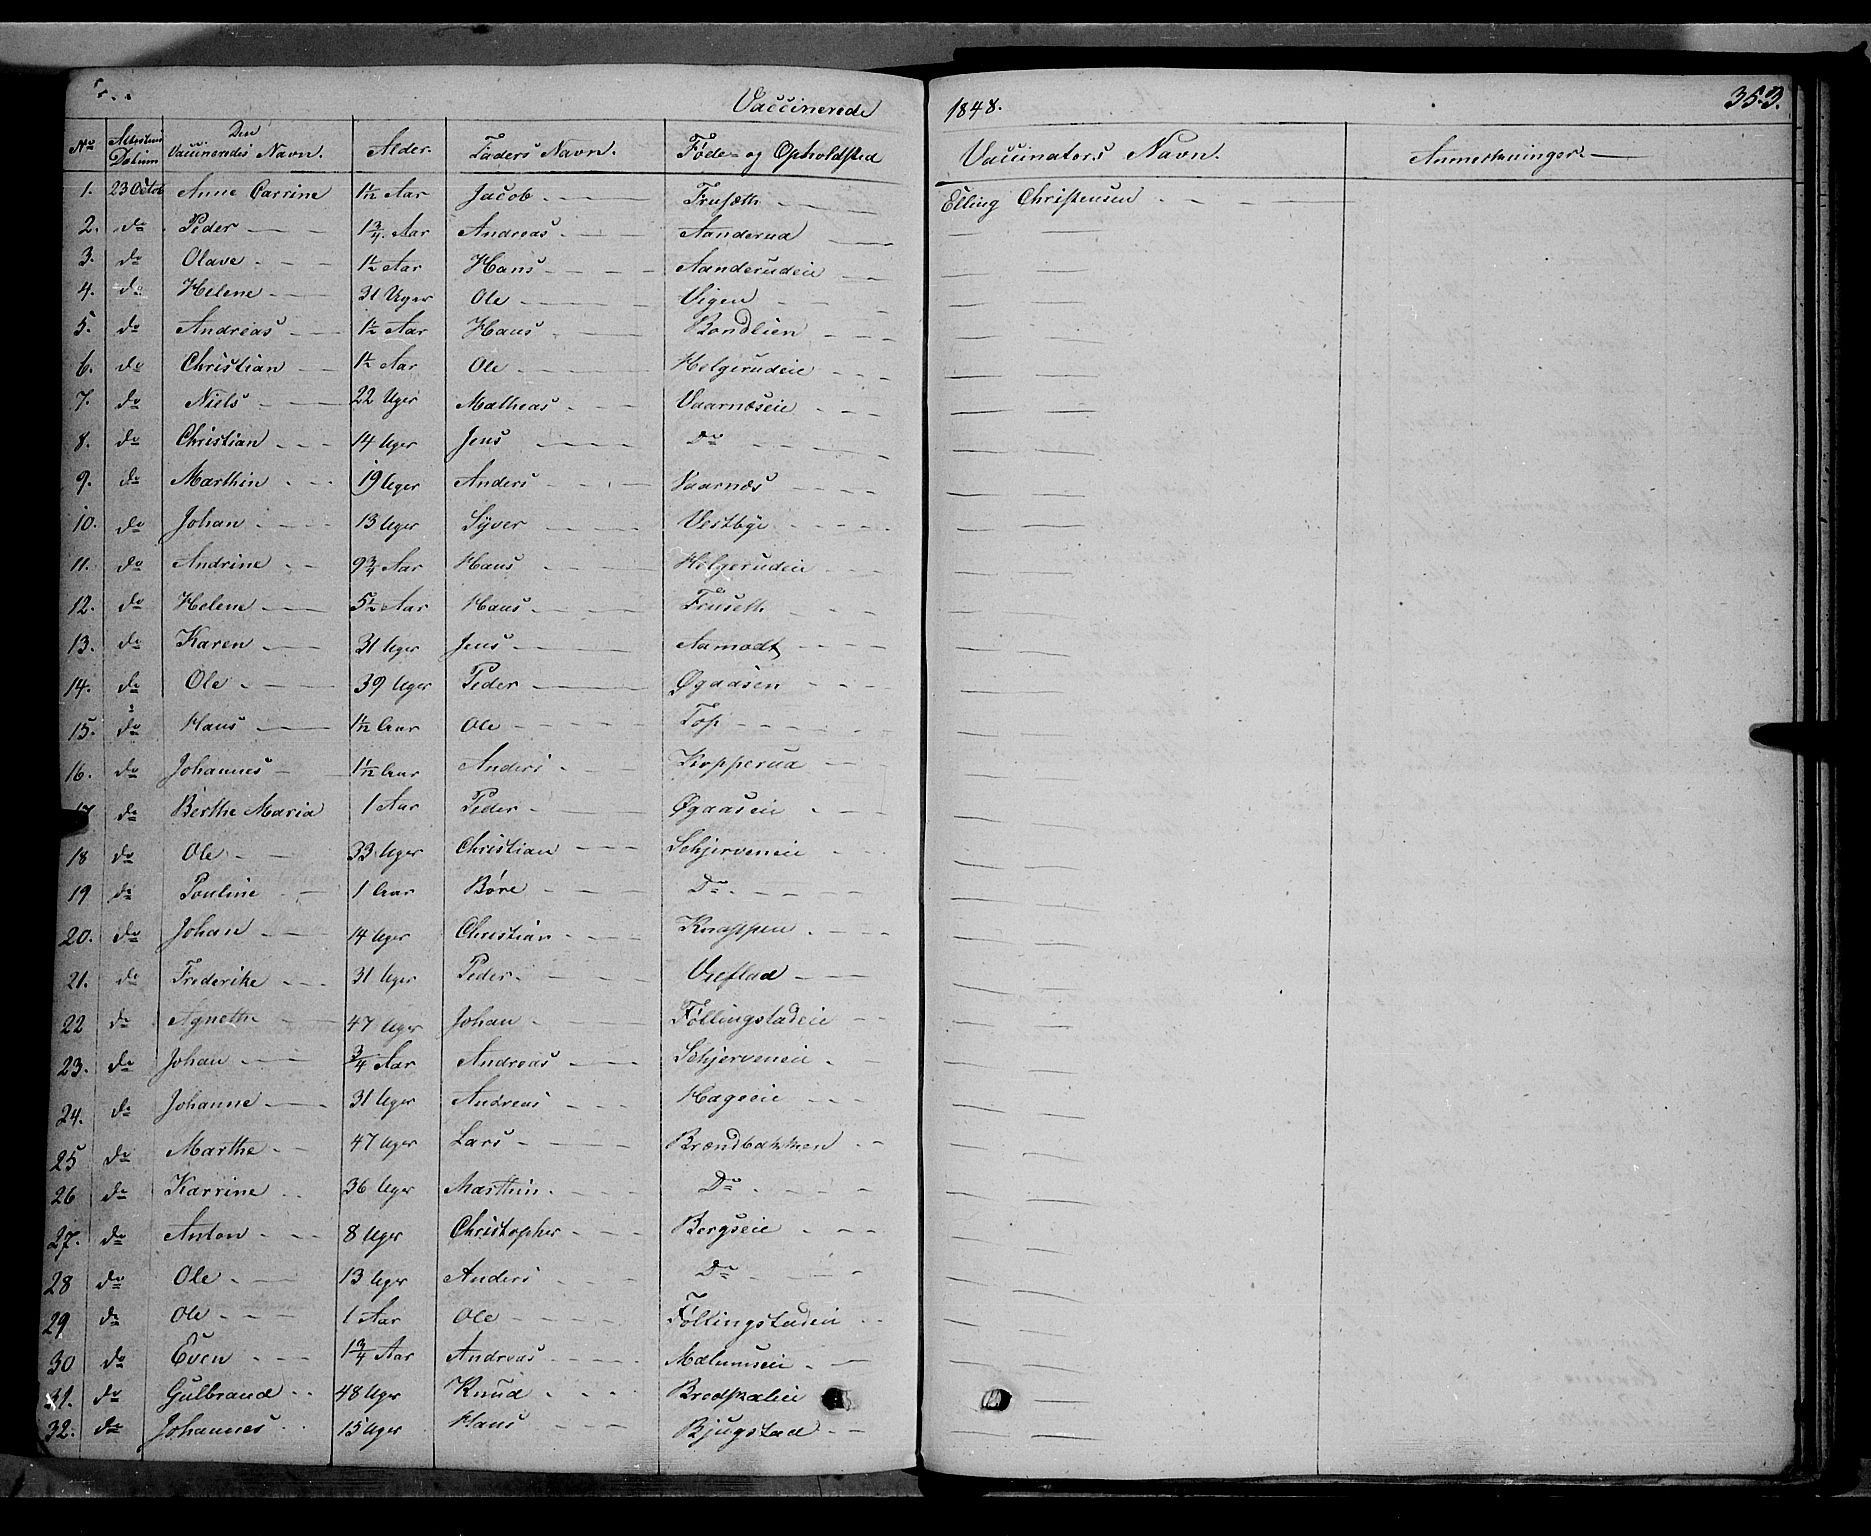 Vaccinerede 1848. 353.
No Attestens Datum Den Vaccineredes Navn. Alder. Faders Navn. Føde- og Opholdsted Vaccinators Navn. Anmerkninger
1. 23 Octob Anne Carrine 1½ Aar Jacob Fruseth Elling Christensen
2. do Peder 1¾ Aar Andreas Aanderud
3. do Olave 1½ Aar Hans Aanderudeie
4. do Helene 31 Uger Ole Vigen
5. do Andreas 1½ Aar Hans Bondlien
6. do Christian 1½ Aar Ole Helgerudeie
7. do Niels 22 Uger Matheas Vaarnæseie
8. do Christian 14 Uger Jens Do
9. do Marthin 19 Uger Anders Vaarnæs
10. do Johan 13 Uger Syver Vestbye
11. do Andrine 9¾ Aar Hans Helgerudeie
12. do Helene 5½ Aar Hans Fruseth
13. do Karen 31 Uger Jens Aamodt
14. do Ole 39 Uger Peder Øgaasen
15. do Hans 1½ Aar Ole Top
16. do Johannes 1½ Aar Anders Kopperud
17 do Berthe Maria 1 Aar Peder Øgaaseie
18 do Ole 33 Uger Christian Schjerveneie
19 do Pauline 1 Aar Børe Do
20. do Johan 14 Uger Christian Knappen
21. do Frederike 31 Uger Peder
22 do Agnethe 47 Uger Johan Føllingstadeie
23. do Johan ¾ Aar Andreas Schjerveneie
24. do Johanne 31 Uger Andreas Hageeie
25 do Marthe 47 Uger Lars Brændbakken
26 do Karrine 36 Uger Marthin Do
27. do Anton 8 Uger Christopher Bergseie
28 do Ole 13 Uger Anders Do
29 do Ole 1 Aar Ole Føllingstadeie
30 do Even 1¾ Aar Andreas Mælumseie
31. do Gulbrand 48 Uger Knud
32. do Johannes 15 Uger Hans Bjugstad